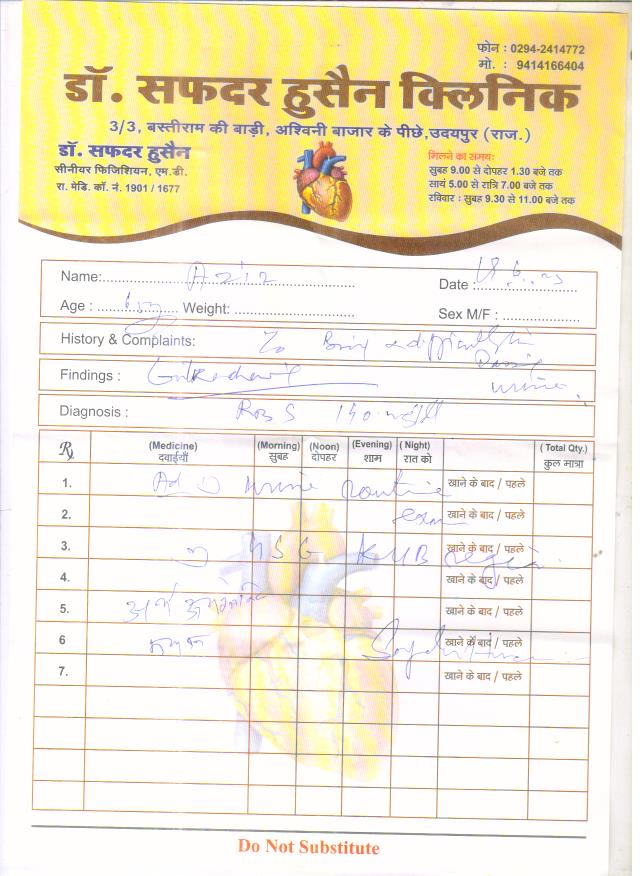 फोन : 0294-2414772
मो. : 9414166404
डॉ. सफदर हुसैन क्लिनिक
3/3, बस्तीराम की बाड़ी, अश्विनी बाजार के पीछे,उदयपुर (राज.)
डॉ. सफदर हुसैन
सीनीयर फिजिशियन, एम.डी.
रा. मेडि. कॉ. नं. 1901 / 1677
मिलने का समयः
सुबह 9.00 से दोपहर 1.30 बजे तक
सायं 5.00 से रात्रि 7.00 बजे तक
रविवार : सुबह 9.30 से 11.00 बजे तक
Name: Aziz Date :
Age : Weight: Sex M/F :
History & Complaints:
urine.
Findings :
Diagnosis : RBS 140
Rx (Medicine) (Morning) (Noon) (Evening) (Night) (Total Qty.)
दवाईयाँ सुबह दोपहर शाम रात को कुल मात्रा
1. Ad urine routine खाने के बाद / पहले
2. exam खाने के बाद / पहले
3. KUB खाने के बाद / पहले
4. खाने के बाद / पहले
5. खाने के बाद / पहले
6 खाने के बाद / पहले
7. खाने के बाद / पहले
Do Not Substitute